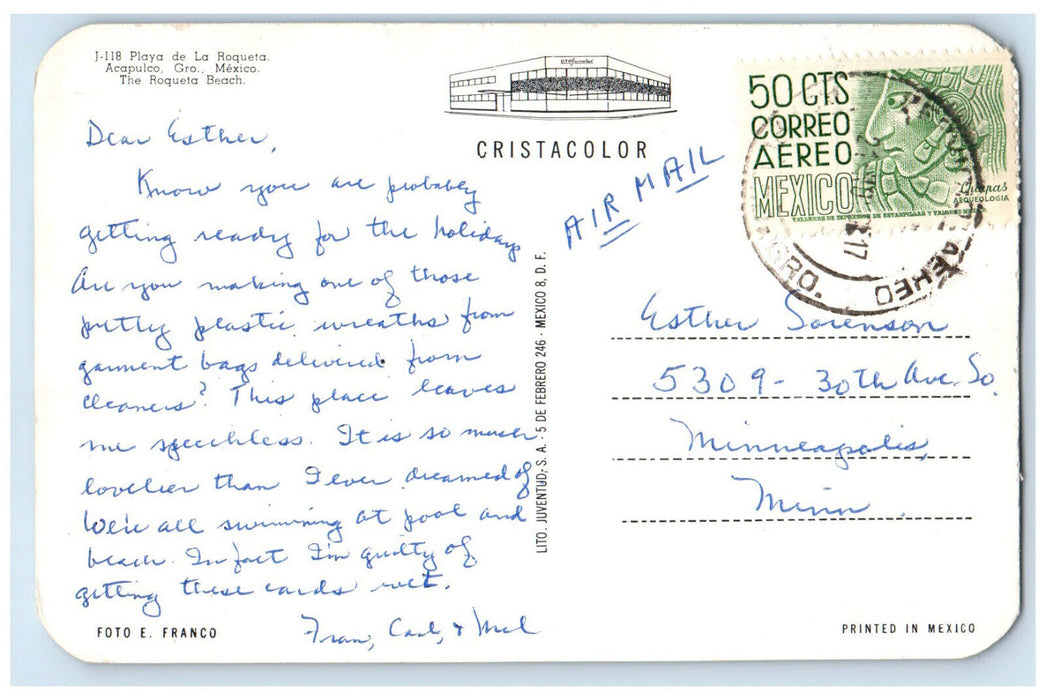 J-118 Playa de La Roqueta.
Acapulco, Gro., México.
The Roqueta Beach.
CRISTACOLOR
50 CTS
CORREO
AEREO
MEXICO
Chiapas
ARQUEOLOGIA
TALLERES DE IMPRESION DE ESTAMPILLAS Y VALORES MEXICO
GRO.
AEREO
17
AIR MAIL
Dear Esther,
Know you are probably
getting ready for the holidays
Are you making one of those
pretty plastic wreaths from
garment bags delivered from
cleaners? This place leaves
me speechless. It is so much
lovelier than I ever dreamed of
We're all swimming at pool and
beach. In fact I'm guilty of
getting these cards wet.
Fran, Carl, & Mel
LITO. JUVENTUD, S. A. - 5 DE FEBRERO 246 - MEXICO 8, D. F.
Esther Sorenson
5309 - 30th Ave. So.
Minneapolis,
Minn.
FOTO E. FRANCO
PRINTED IN MEXICO